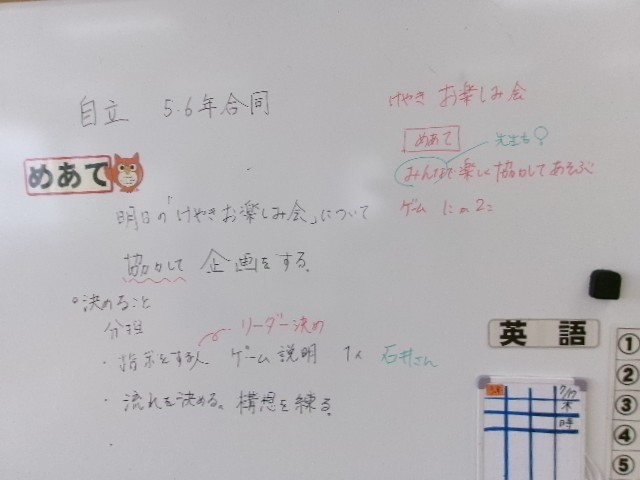 自立 5.6年合同
めあて
明日の「けやきお楽しみ会」について
協力して 企画をする。
○決めること
分担
リーダー決め
・指示をする人 ゲーム説明 1人 石井さん
・流れを決める。構想を練る。
・
けやき お楽しみ会
めあて
先生も
みんなで楽しく協力してあそぶ
ゲーム
英語
①
②
③
④
⑤
7/17
木